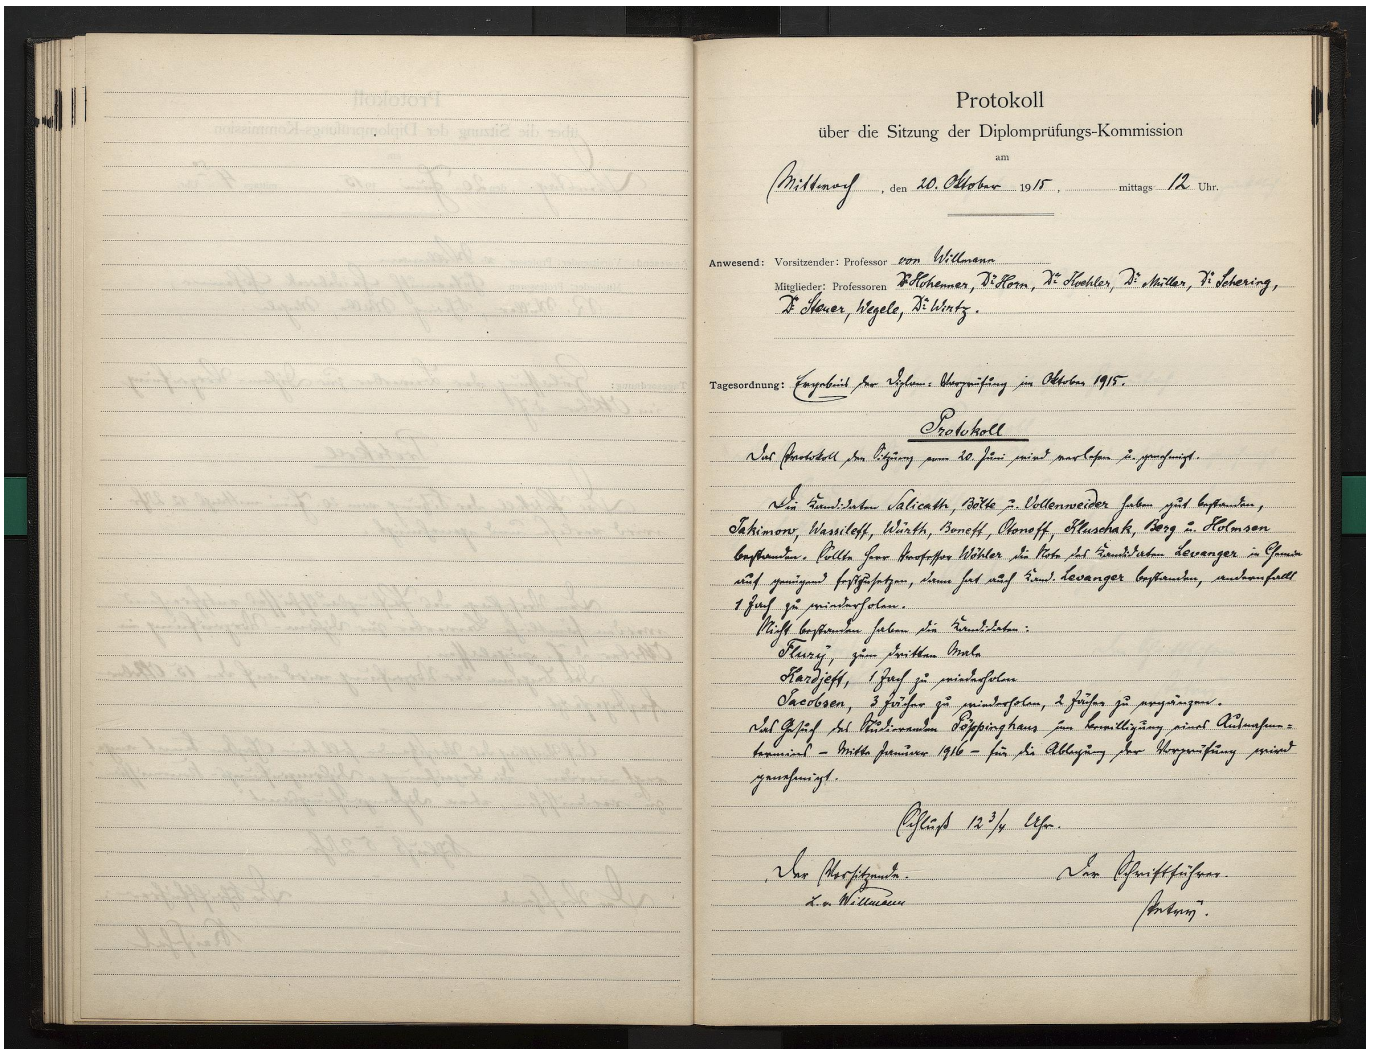 Protokoll
über die Sitzung der Diplomprüfungs-Kommission
am
Mittwoch, den 20. Oktober 1915, mittags 12 Uhr.
Anwesend: Vorsitzender: Professor von Willmann
Mitglieder: Professoren Dr Hohenner, Dr Horn, Dr Koehler, Dr Müller, Dr Schering,
Dr Steuer, Wegele, Dr Wirtz.
Tagesordnung: Ergebnis der Diplom-Vorprüfung im Oktober 1915.
Protokoll
Das Protokoll der Sitzung vom 20. Juni wird verlesen u. genehmigt.
Die Kandidaten Salicath, Bölte u. Vollenweider haben gut bestanden,
Jakimow, Wassileff, Würth, Boneff, Otonoff, Kluschak, Berg u. Holmsen
bestanden. Sollte Herr Professor Wöhler die Note des Kandidaten Levanger in Chemie
auf genügend festzusetzen, dann hat auch Kand. Levanger bestanden, andernfalls
1 Fach zu wiederholen.
Nicht bestanden haben die Kandidaten:
Flury, zum dritten Male
Kardjeff, 1 Fach zu wiederholen
Jacobsen, 3 Fächer zu wiederholen, 2 Fächer zu ergänzen.
Das Gesuch des Studierenden Pöppinghaus um Bewilligung eines Ausnahme=
termines – Mitte Januar 1916 – für die Ablegung der Vorprüfung wird
genehmigt.
Schluß 12 3/4 Uhr.
Der Vorsitzende. Der Schriftführer.
L. v. Willmann
Petry.